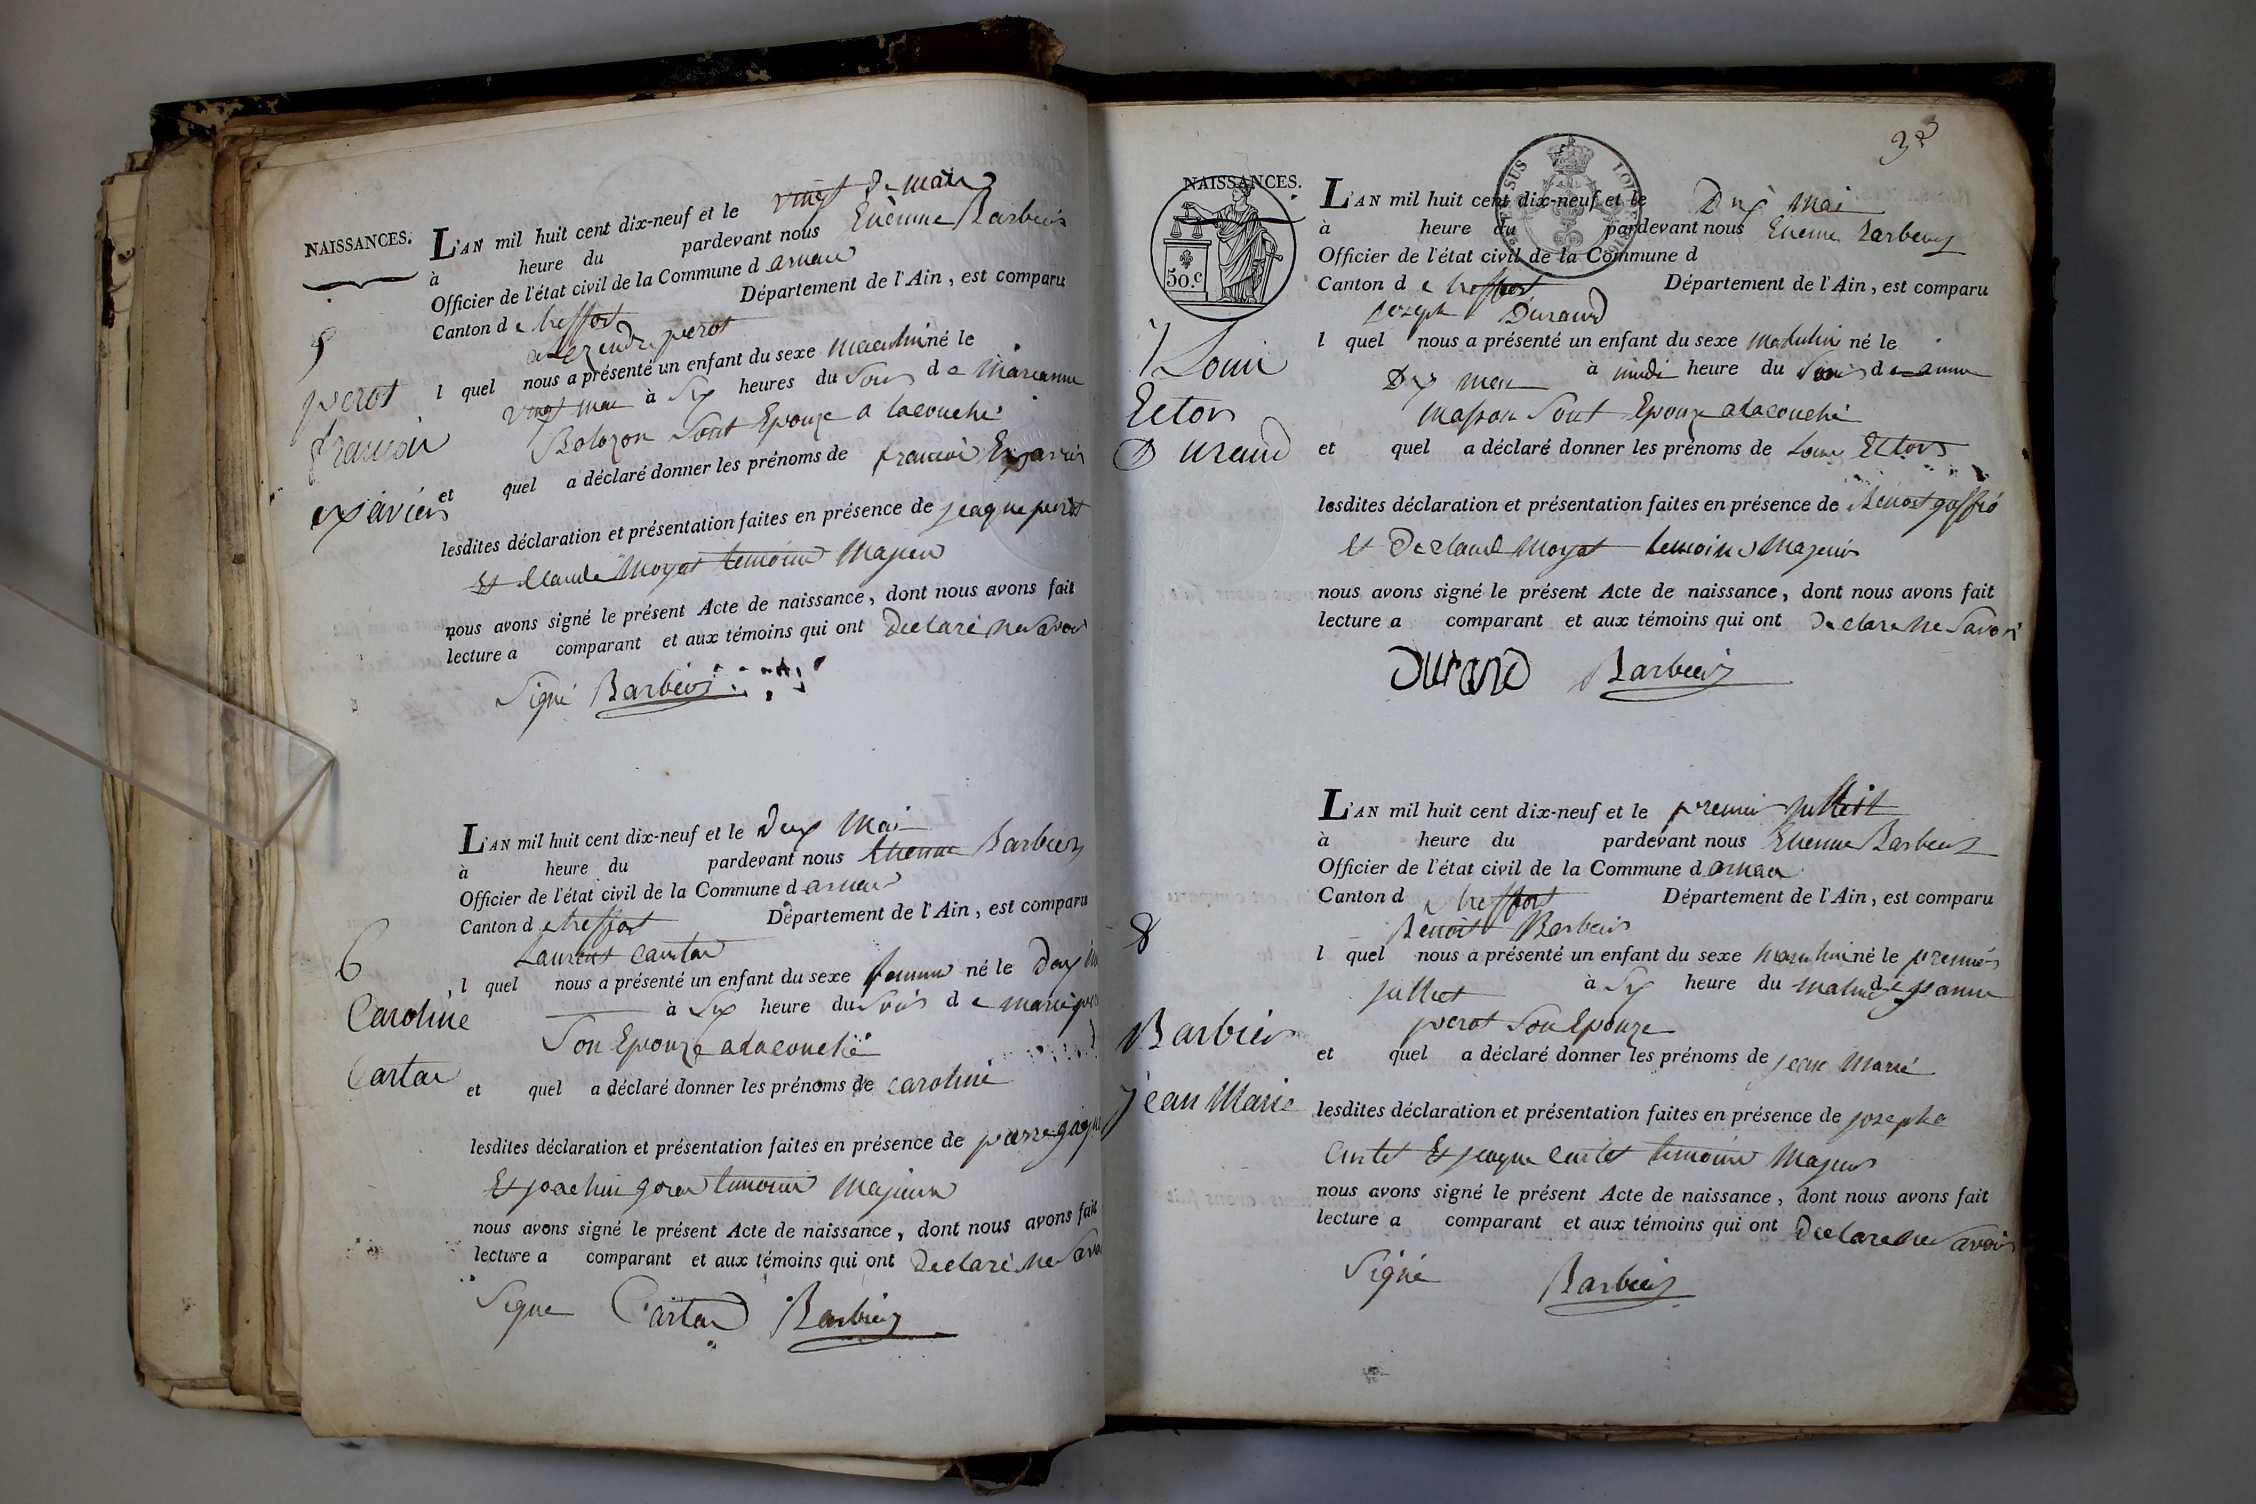 NAISSANCES.
L'AN mil huit cent dix-neuf et le vingt de mai
à heure du pardevant nous Etienne Barbier
Officier de l'état civil de la Commune d arnan
Canton d e treffort Département de l'Ain, est comparu
perot
l quel nous a présenté un enfant du sexe né le
5
perot
françois
exavier
vingt mai à Six heures du Soir d e Marianne
Bolozon Sont Epouze a lacouché
et quel a déclaré donner les prénoms de françoi Exavier
lesdites déclaration et présentation faites en présence de jeaque perot
Et Claude Moyat temoins Majeur
nous avons signé le présent Acte de naissance, dont nous avons fait
lecture a comparant et aux témoins qui ont Declaré ne Savoi
Signé Barbier
L'AN mil huit cent dix-neuf et le Dux Mai
à heure du pardevant nous Etienne Barbier
Officier de l'état civil de la Commune d arnan
Canton d e treffort Département de l'Ain, est comparu
Laurent Cartar
6
Caroline
Cartar
l quel nous a présenté un enfant du sexe femme né le Dux
à Six heure du Soir d e marie
Son Epouze a dacouché
et quel a déclaré donner les prénoms de caroline
lesdites déclaration et présentation faites en présence de pierre
Et joachin temoins Majeur
nous avons signé le présent Acte de naissance, dont nous avons fait
lecture a comparant et aux témoins qui ont Declaré ne Savo
Signe Cartar Barbier
32
NAISSANCES.
50.c
L'AN mil huit cent dix-neuf et le Dux Mai
à heure du pardevant nous Etienne Barbier
Officier de l'état civil de la Commune d
Canton d e treffort Département de l'Ain, est comparu
jozeph Durand
7 Loui
Ector
Durand
l quel nous a présenté un enfant du sexe né le
Dux mai à midi heure du Soir d e anne
Masson Sont Epouze a dacouché
et quel a déclaré donner les prénoms de Loui Ector
lesdites déclaration et présentation faites en présence de Benoit
et De Claude Moyat temoins Majeur
nous avons signé le présent Acte de naissance, dont nous avons fait
lecture a comparant et aux témoins qui ont Declare ne Savoir
Durand Barbier
L'AN mil huit cent dix-neuf et le premier juillet
à heure du pardevant nous Etienne Barbier
Officier de l'état civil de la Commune d arnan
Canton d e treffort Département de l'Ain, est comparu
Benoit Barbier
8
Barbier
jean Marie
l quel nous a présenté un enfant du sexe masculin né le premier
juillet à Six heure du matin d e jeanne
perot Son Epouze
et quel a déclaré donner les prénoms de jean Marie
lesdites déclaration et présentation faites en présence de jozephe
Curtet Et jeaque Curtet temoins Majeur
nous avons signé le présent Acte de naissance, dont nous avons fait
lecture a comparant et aux témoins qui ont Declare ne Savoir
Signé Barbier